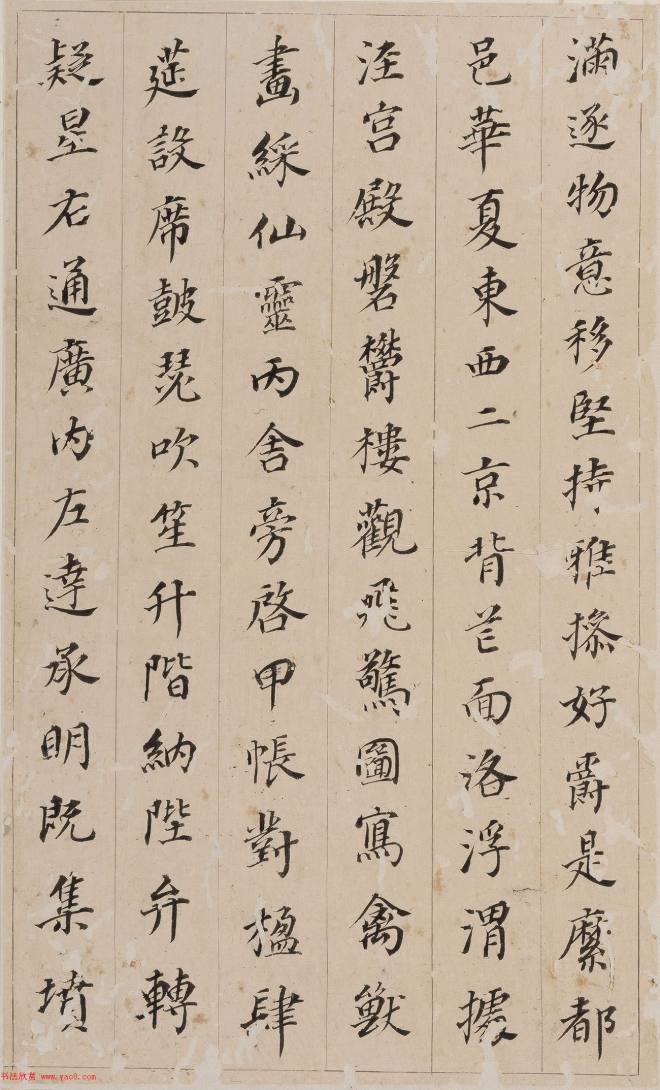 滿逐物意移堅持雅操好爵是縻都
邑華夏東西二京背芒面洛浮渭據
泾宮殿磐鬱樓觀飛驚圖寫禽獸
畫綵仙靈丙舍旁啓甲帳對楹肆
莚設席皷瑟吹笙升階納陛弁轉
疑星右通廣內左達承明既集墳
书法欣赏 www.yac8.com